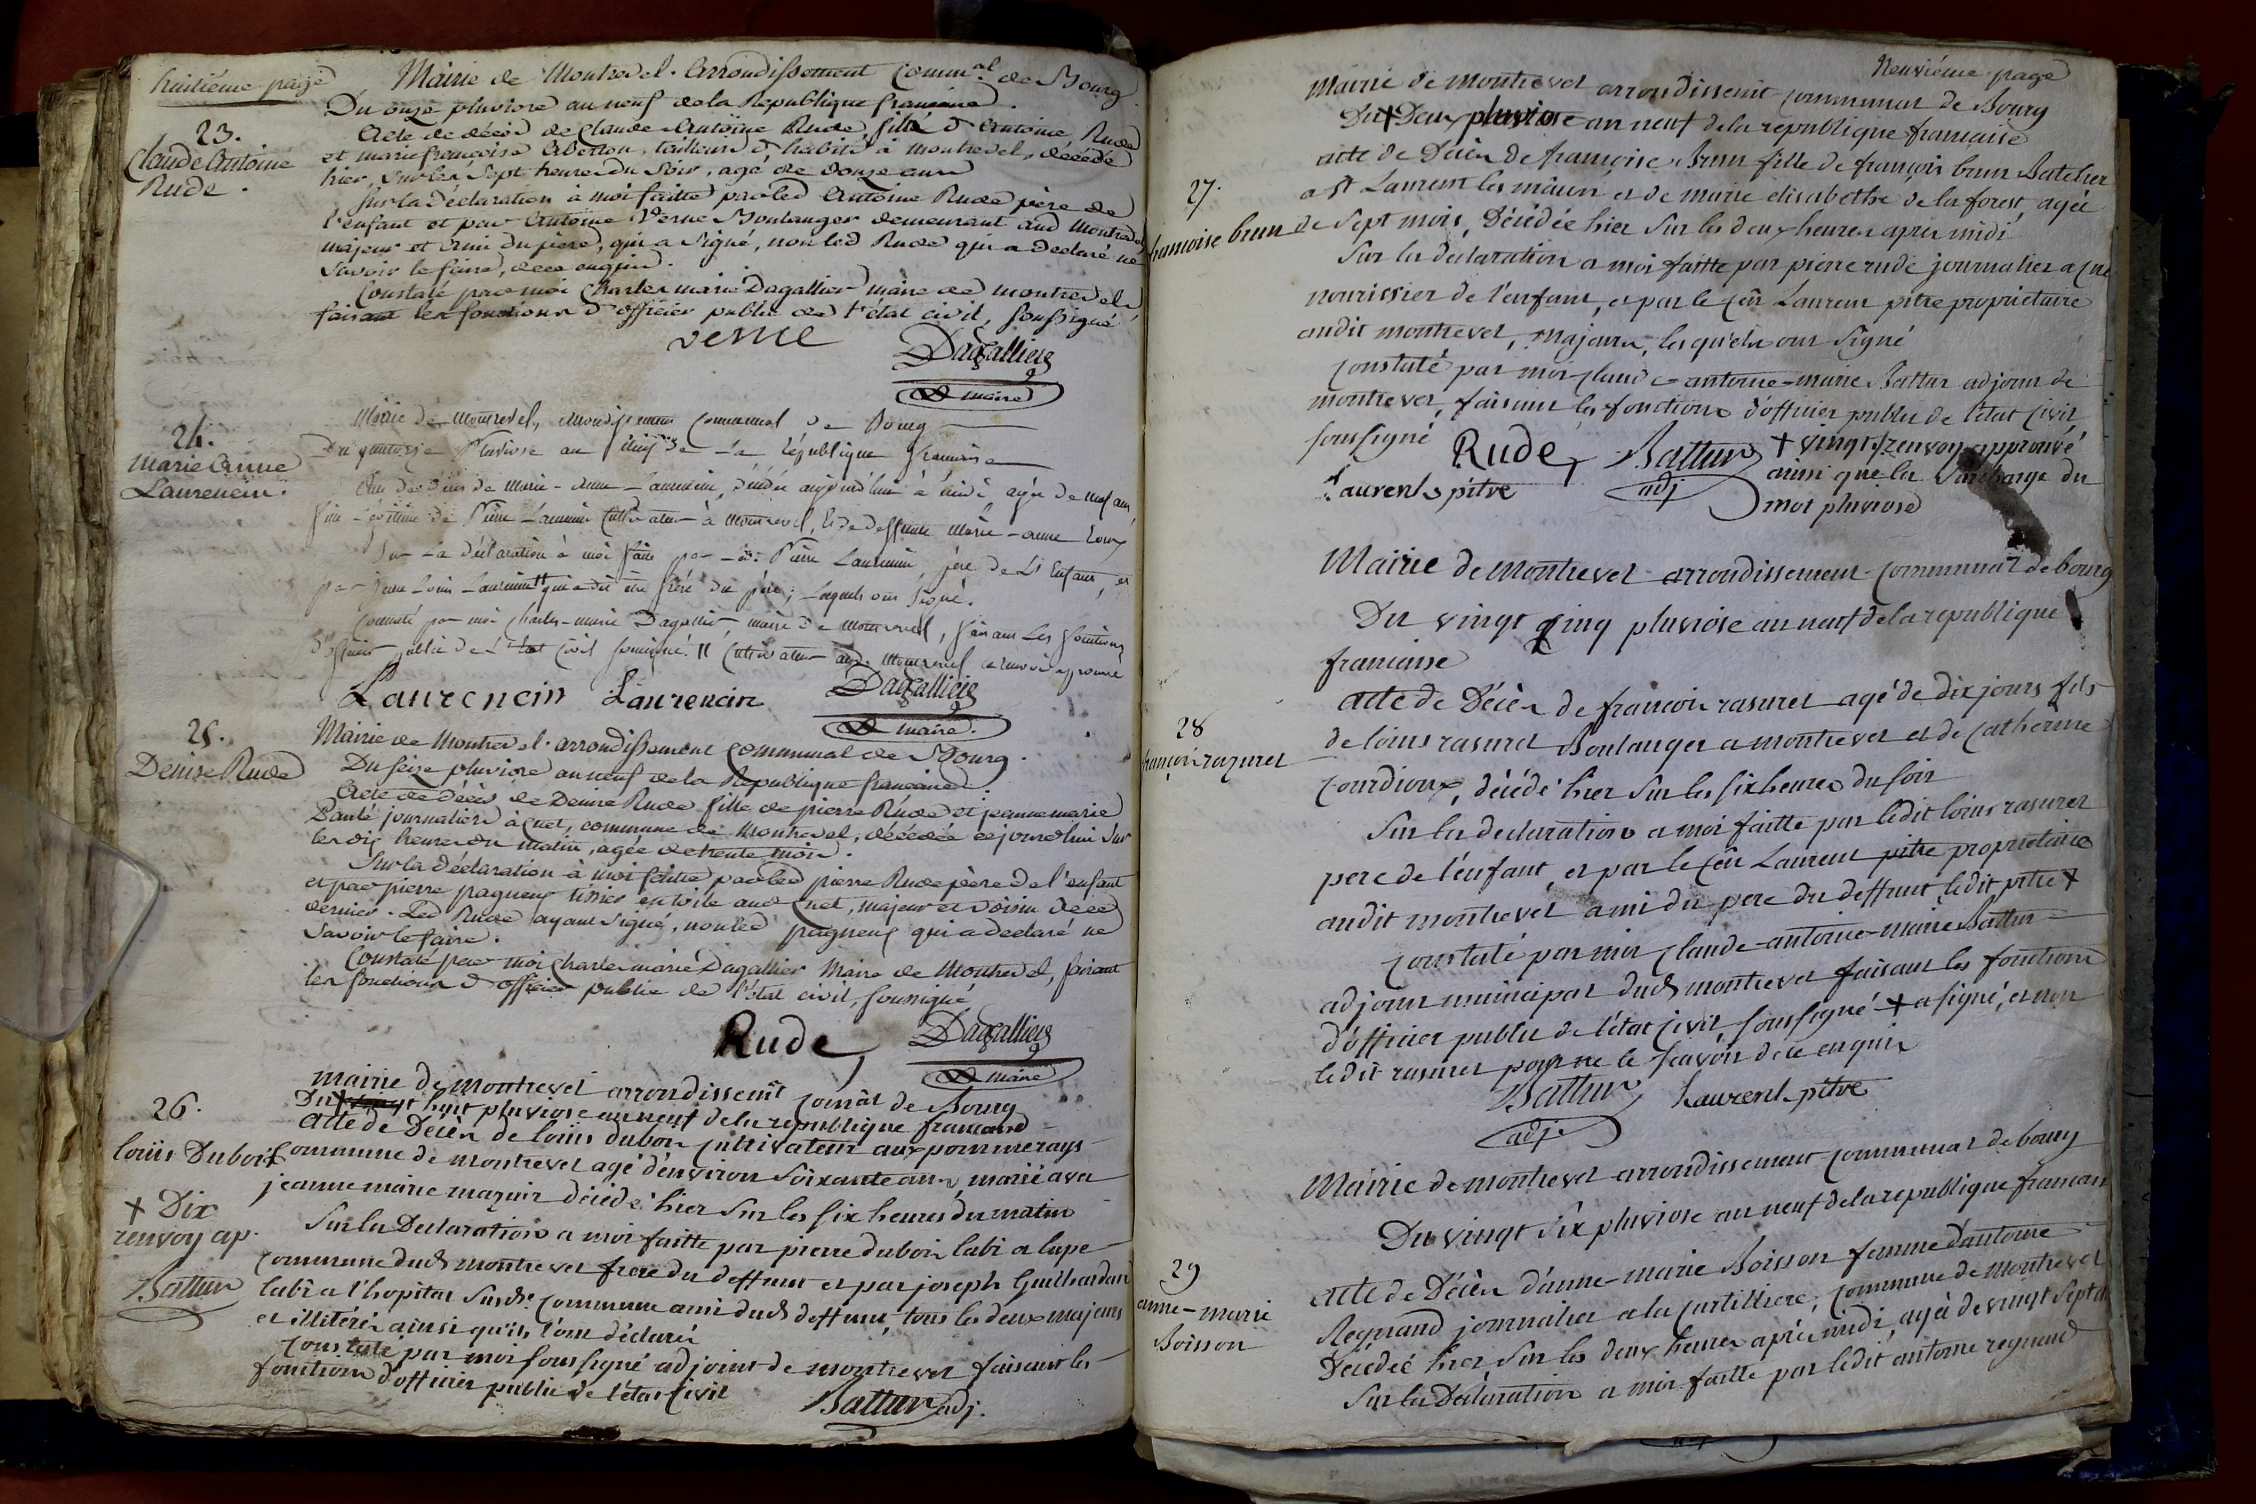 huitiéme page
Mairie de Montrevel. Arrondissement Comm.al de Bourg.
Du onze pluviose an neuf de la Republique francaise.
23.
Claude Antoine
Rude.
Acte de décès de Claude Antoine Rude, fils d'Antoine Rude
et marie francoise tailleur d'habits à Montrevel, décédé
hier, sur les Sept heures du Soir, agé de douze ans
Sur la déclaration à moi faitte par led Antoine Rude père de
l'enfant et par Antoine Verne Boulanger demeurant aud Montrevel
majeur et ami du père, qui a signé, non led Rude qui a declaré ne
Savoir le faire, de ce enquis.
Constaté par moi Charles marie Dagallier maire de montrevel
faisant les fonctions d'officier public de l'état civil, soussigné
verne
Dagallier
maire
24.
Marie Anne
Laurencin.
Mairie de Montrevel, arrondissement communal de Bourg
Du quatorze Pluviose an neuf de la République française
Acte de décès de Marie-Anne Laurencin, décédée aujourd'hui à midi, agée de neuf ans,
fille légitime de Pierre Laurencin Cultivateur à Montrevel, et de deffunte Marie-Anne
Sur la déclaration à moi faite par led. Pierre Laurencin père de l'Enfant, et
par Louis Laurencin qui a dit être frère du père; lesquels ont signé.
Constaté par moi Charles-marie Dagallier maire de Montrevel, faisant les fonctions
d'officier public de l'état Civil soussigné. Cultivateur aud. Montrevel renvoi approuvé
Laurencin Laurencin
Dagallier
maire.
25.
Denise Rude
Mairie de Montrevel. arrondissement communal de Bourg.
Du seize pluviose an neuf de la Republique francaise.
Acte de décès de Denise Rude fille de pierre Rude et jeanne marie
journaliers à Cuet, commune de Montrevel, décédée ce jourd'hui sur
les dix heures du matin, agée de trente mois.
Sur la déclaration à moi faitte par led pierre Rude père de l'enfant
et par pierre pagneux tissier en toile aud Cuet, majeur et voisin de ce
dernier. Led Rude ayant signé, non led pagneux qui a declaré ne
Savoir le faire.
Constaté par moi Charles marie Dagallier Maire de Montrevel, faisant
les fonctions d'officier public de l'état civil, soussigné
Rude
Dagallier
maire
26.
Louis Dubois
+ Dix
renvoy ap.
Battur
mairie de montrevel arrondissemt comāl de Bourg
Du + vingt huit pluviose an neuf de la republique francaise
acte de Décès de louis dubois cultivateur aux pommerays
commune de montrevel agé d'environ soixante ans, marié avec
jeanne marie décédé hier sur les six heures du matin
Sur la Declaration a moi faitte par pierre dubois labr a lape
commune dud montrevel frere du deffunt et par joseph Guilhardan
labr a l'hopital susde commune ami dud deffunt, tous les deux majeurs
et illitérés ainsi qu'ils l'ont déclaré
Constaté par moi soussigné adjoint de montrevel faisant les
fonctions d'officier public de l'état civil
Battur adj.
Neuviéme page
mairie de montrevel arrondissemt communal de Bourg
Du + Deux pluviose an neuf de la republique francaise
27.
francoise brun
acte de Décès de francoise Brun fille de françois brun Batelier
a St Laurent les mâcon et de marie elisabethe de la forest, agée
de sept mois, Décédée hier sur les deux heures après midi
Sur la declaration a moi faitte par pierre rude journalier a Cuet
nourissier de l'enfant, et par le cen Laurent pitre proprietaire
audit montrevel, majeurs, lesquels ont signé
Constaté par moi Claude-antoine-marie Battur adjoint de
montrevel, faisant les fonctions d'officier public de l'état civil
soussigné
Rude
Battur
adj
Laurent pitre
+ vingt, renvoy approuvé
ainsi que la surcharge du
mot pluviose
Mairie de Montrevel arrondissement communal de bourg
Du vingt cinq pluviose an neuf de la republique
francaise
28
françois razuret
acte de Décès de francois rasuret agé de dix jours fils
de louis rasuret Boulanger a montrevel et de Catherine
Courdioux, décédé hier sur les six heures du soir
Sur la declaration a moi faitte par ledit louis rasuret
pere de l'enfant, et par le cen Laurent pitre proprietaire
audit montrevel ami du pere du deffunt ledit pitre +
Constaté par moi Claude-antoine-marie Battur
adjoint municipal dud montrevel faisant les fonctions
d'officier public de l'état civil, soussigné + a signé, et non
ledit rasuret pour ne le scavoir de ce enquis
Battur
adj.
Laurent pitre
Mairie de montrevel arrondissement communal de bourg
Du vingt six pluviose an neuf de la republique francais
29
anne-marie
Boisson
acte de Décès d'anne-marie Boisson femme d'antoine
Regnaud journalier a la Curtilliere, commune de Montrevel
Décédée hier sur les deux heures après midi, agée de vingt sept
Sur la Declaration a moi faitte par ledit antoine regnaud